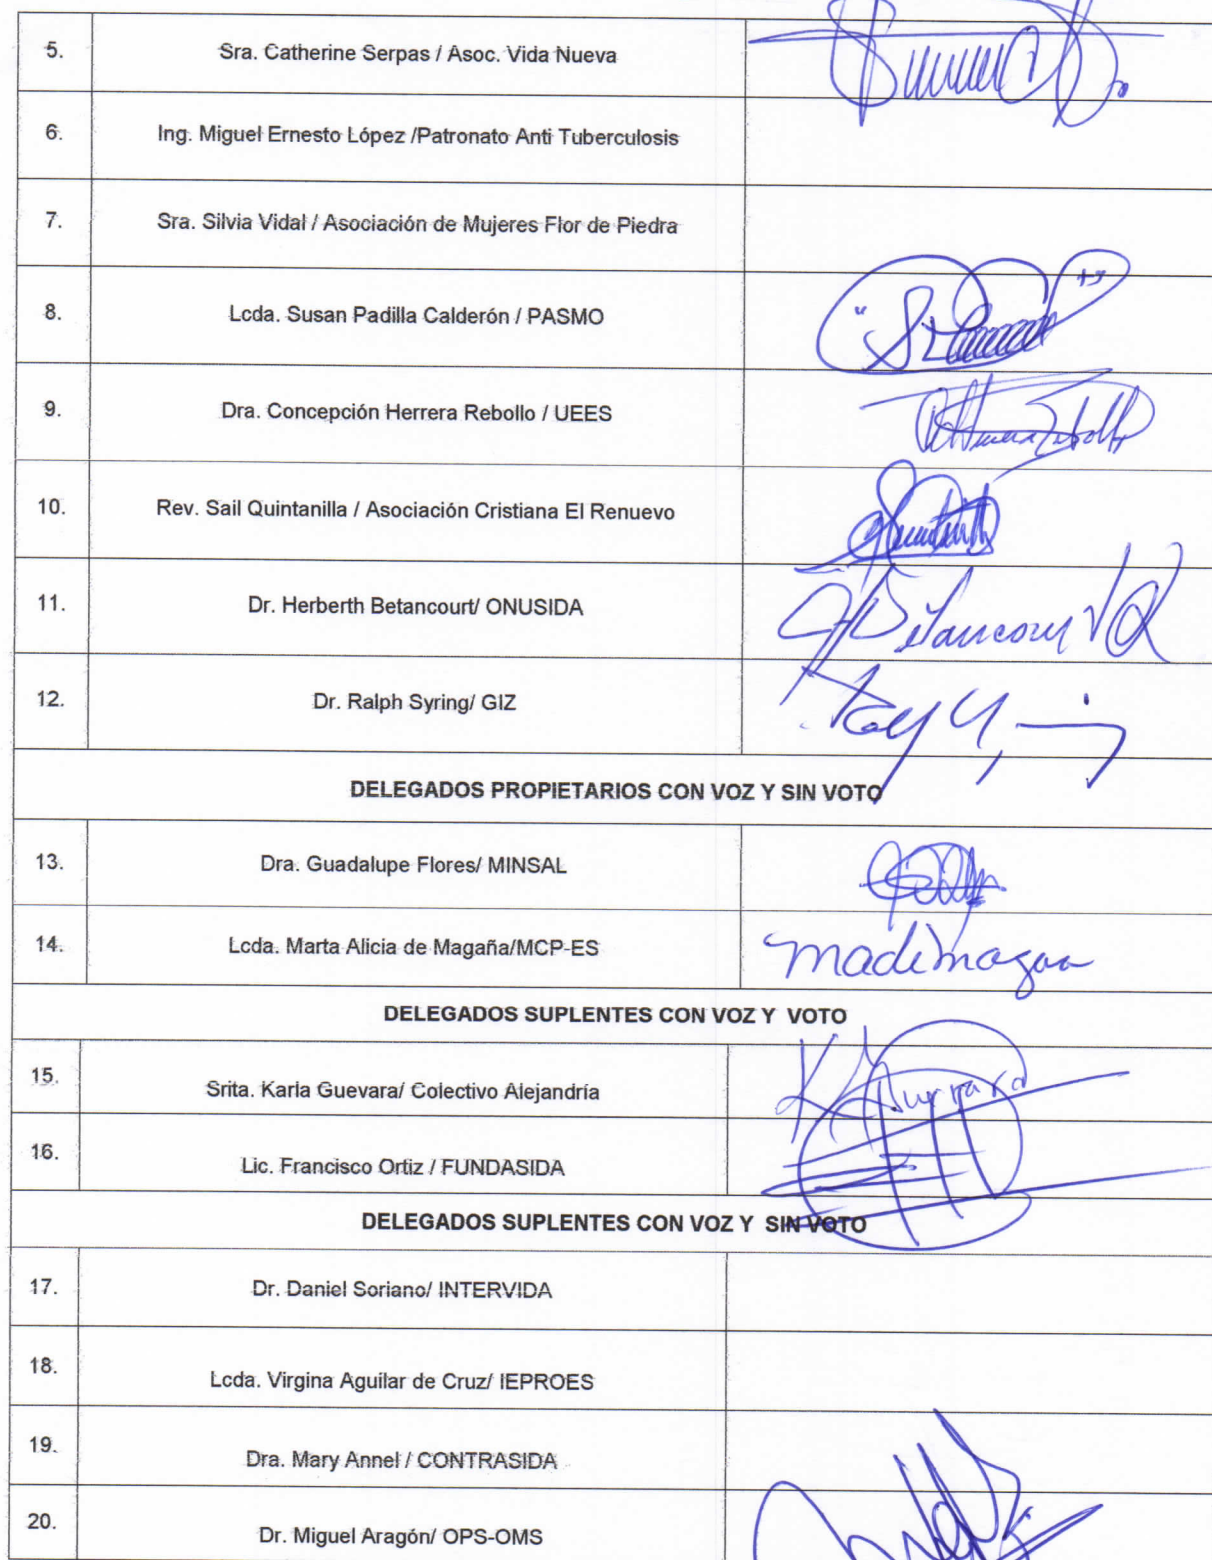 5. Sra. Catherine Serpas / Asoc. Vida Nueva
6. Ing. Miguel Ernesto López /Patronato Anti Tuberculosis
7. Sra. Silvia Vidal / Asociación de Mujeres Flor de Piedra
8. Lcda. Susan Padilla Calderón / PASMO
9. Dra. Concepción Herrera Rebollo / UEES
10. Rev. Sail Quintanilla / Asociación Cristiana El Renuevo
11. Dr. Herberth Betancourt/ ONUSIDA
12. Dr. Ralph Syring/ GIZ
DELEGADOS PROPIETARIOS CON VOZ Y SIN VOTO
13. Dra. Guadalupe Flores/ MINSAL
14. Lcda. Marta Alicia de Magaña/MCP-ES
DELEGADOS SUPLENTES CON VOZ Y VOTO
15. Srita. Karla Guevara/ Colectivo Alejandría
16. Lic. Francisco Ortiz / FUNDASIDA
DELEGADOS SUPLENTES CON VOZ Y SIN VOTO
17. Dr. Daniel Soriano/ INTERVIDA
18. Lcda. Virgina Aguilar de Cruz/ IEPROES
19. Dra. Mary Annel / CONTRASIDA
20. Dr. Miguel Aragón/ OPS-OMS